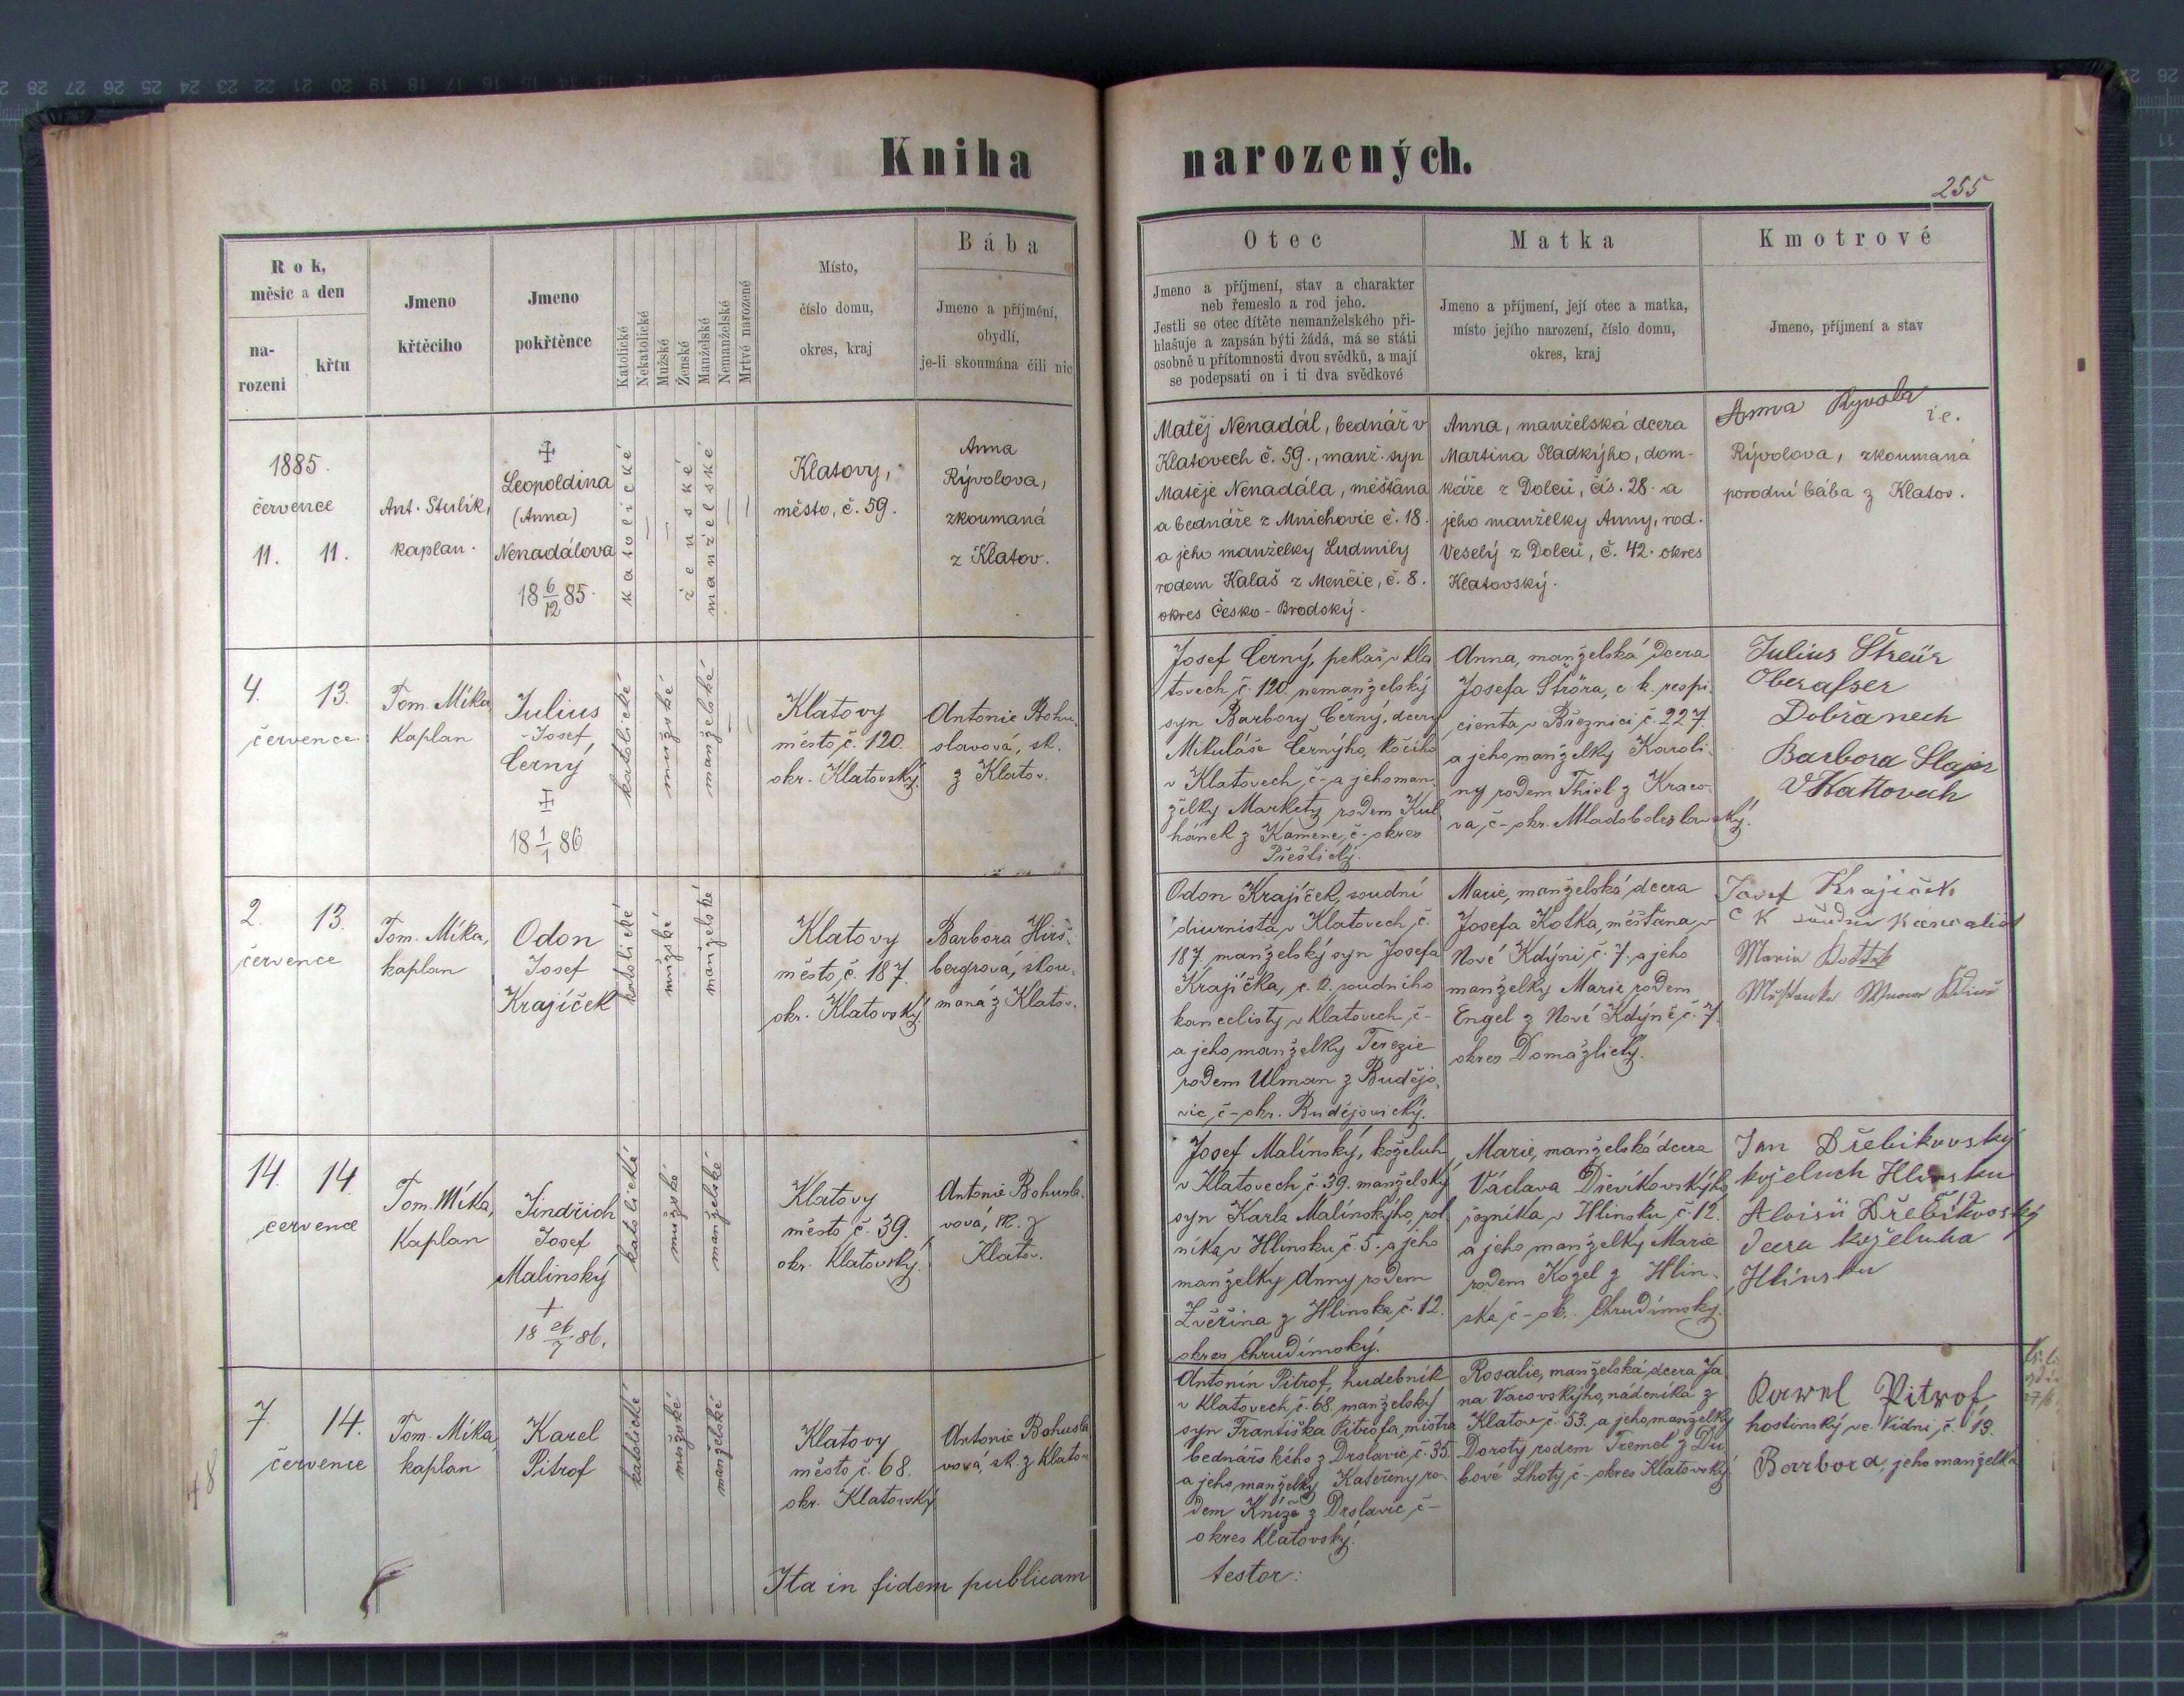 Kniha narozených.
255
Rok,
měsíc a den
na-
rozeni
křtu
Jmeno
křtěcího
Jmeno
pokřtěnce
Katolické
Nekatolické
Mužské
Ženské
Manželské
Nemanželské
Mrtvě narozené
Místo,
číslo domu,
okres, kraj
Bába
Jmeno a příjmění,
obydlí,
je-li skoumána čili nic
Otec
Jmeno a příjmení, stav a charakter
neb řemeslo a rod jeho.
Jestli se otec dítěte nemanželského při-
hlašuje a zapsán býti žádá, má se státi
osobně u přítomnosti dvou svědků, a mají
se podepsati on i ti dva svědkové
Matka
Jmeno a příjmení, její otec a matka,
místo jejího narození, číslo domu,
okres, kraj
Kmotrové
Jmeno, příjmení a stav
1885.
července
11. 11.
Ant. Stulík,
kaplan.
Leopoldina
(Anna)
Nenadálova
18 6/12 85.
katolické
ženské
manželské
Klatovy,
město, č. 59.
Anna
Rývolova,
zkoumaná
z Klatov.
Matěj Nenadál, bednář v
Klatovech č. 59., manž. syn
Matěje Nenadála, měšťana
a bednáře z Mnichovic č. 18.
a jeho manželky Ludmily
rodem Kalaš z Menčic, č. 8.
okres Česko-Brodský.
Anna, manželská dcera
Martina Sladkýho, dom-
káře z Dolců, čís. 28. a
jeho manželky Anny, rod.
Veselý z Dolců, č. 42. okres
Klatovský.
Anna
i.e.
Rývolova, zkoumaná
porodní bába z Klatov.
4. 13.
července
Tom. Míka
Kaplan
Julius
Josef
Černý
18 1/1 86
katolické
mužské
manželské
Klatovy
město, č. 120.
okr. Klatovský.
Antonie Bohu-
slavová, sk.
z Klatov.
Josef Černý, pekař v Kla
tovech č. 120. nemanželský
syn Barbory Černý, dcery
Mikuláše Černýho, kočího
v Klatovech, č - a jeho man-
želky Markety rodem Kul
hánek z Kamene, č - okres
Přeštický.
Anna, manželská dcera
Josefa Ströra, c. k. respi-
cienta v Březnici č. 227.
a jeho manželky Karoli-
ny rodem Thiel z Kraco-
va, č - okr. Mladoboleslavský.
Julius
Dobřanech
Barbora
V Klattovech
2. 13.
července
Tom. Míka,
kaplan
Odon
Josef
Krajíček
katolické
mužské
manželské
Klatovy
město, č. 187.
okr. Klatovský.
Barbora Hirš-
bergrová, skou-
maná z Klatov.
Odon Krajíček, soudní
diurnista v Klatovech, č.
187. manželský syn Josefa
Krajíčka, c. k. soudního
kancelisty v Klatovech, č -
a jeho manželky Terezie
rodem Ulman z Budějo-
vic, č - okr. Budějovický.
Marie, manželská dcera
Josefa Kotka, měšťana v
Nové Kdýni, č. 7. a jeho
manželky Marie rodem
Engel z Nové Kdýně č. 7.
okres Domažlický.
Josef Krajíček
Marie
14. 14.
července
Tom. Míka,
Kaplan
Jindřich
Josef
Malinský
18 26/7 86.
katolické
mužské
manželské
Klatovy
město č. 39.
okr. Klatovský.
Antonie Bohusla-
vová, sk. z
Klatov.
Josef Malínský, koželuh
v Klatovech, č. 39. manželský
syn Karla Malínskýho, rol
níka, v Hlinsku č. 5. a jeho
manželky Anny rodem
Zvěřina z Hlinska, č. 12.
okres Chrudímský.
Marie, manželská dcera
Václava Dřevíkovskýho
řezníka v Hlinsku č. 12.
a jeho manželky Marie
rodem Kozel z Hlin-
ska, č - ok. Chrudímský.
Jan Dřebikovský
koželuch
dcera koželuha
7. 14.
července
Tom. Míka,
kaplan
Karel
Pitrof
katolické
mužské
manželské
Klatovy
město č. 68.
okr. Klatovský
Antonie Bohusla
vová, sk. z Klatov
Antonín Pitrof, hudebník
v Klatovech, č. 68. manželský
syn Františka Pitrofa, mistra
bednářského z Drslavic, č. 35.
a jeho manželky Kateřiny ro-
dem Kníže z Drslavic, č -
okres Klatovský.
Rosalie, manželská dcera Ja
na Vacovskýho, nádeníka z
Klatov, č. 53. a jeho manželky
Doroty rodem Tremel z Du-
bové Lhoty, č - okres Klatovský.
Karel Pitrof
hostinský ve Vídni, č. 13.
Barbora, jeho manželka
Ita in fidem publicam
testor: